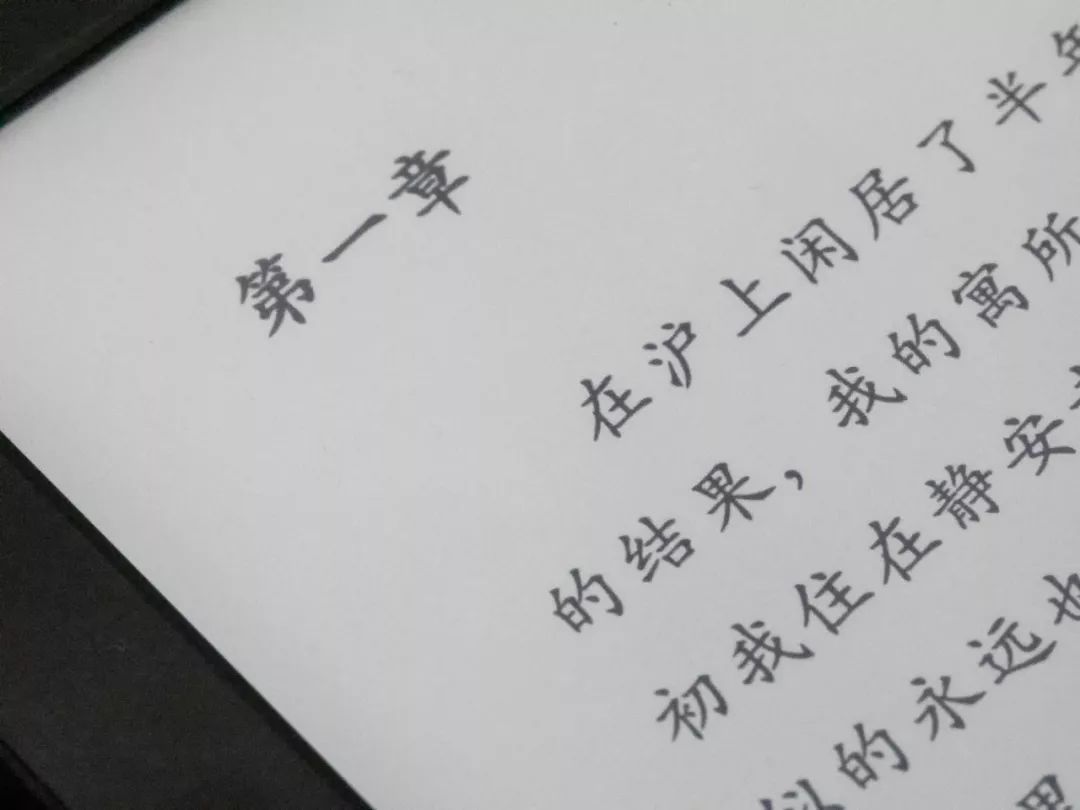 第一章
在沪上闲居了半年
的结果，我的寓所
初我住在静安
似的永远也